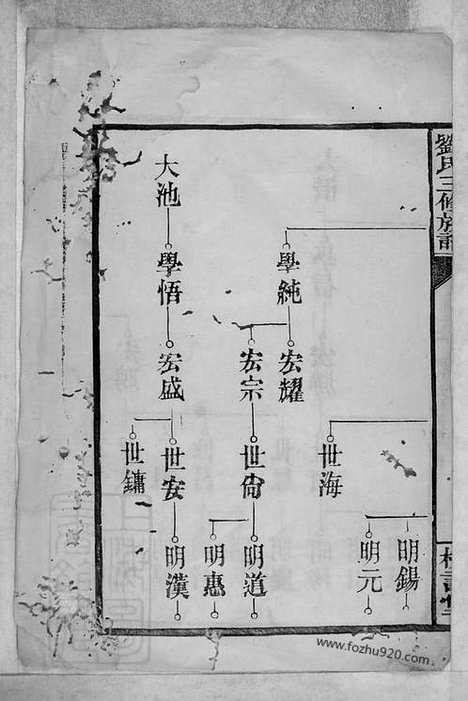 劉氏三修族譜
明錫
明元
世海
學純
宏耀
宏宗
世尙
明道
明惠
大池
學悟
宏盛
世安
世鏞
明漢
www.fozhu920.com